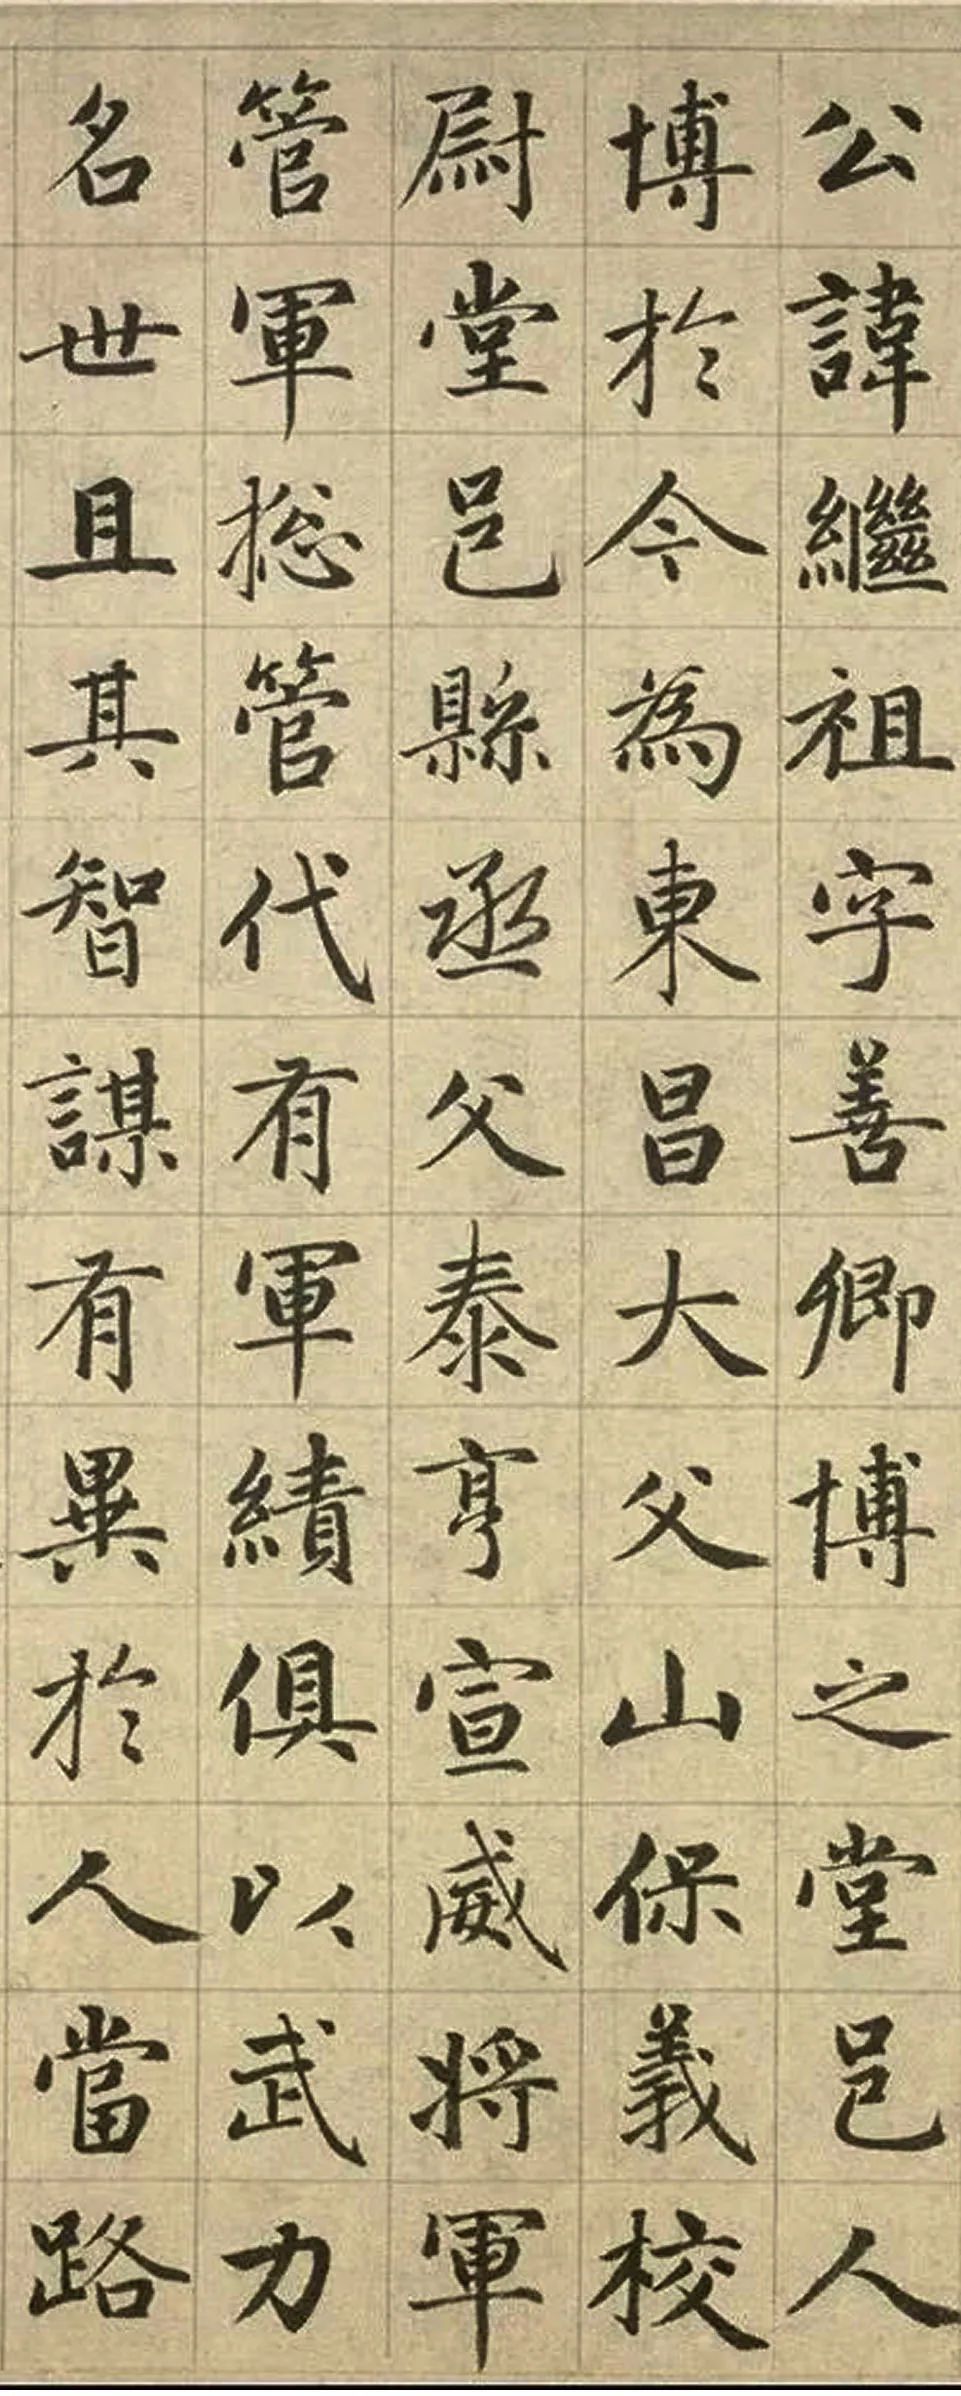 公諱繼祖字善卿博之堂邑人
博於今為東昌大父山保義校
尉堂邑縣丞父泰亨宣威將軍
管軍捴管代有軍績俱以武力
名世且其智謀有異於人當路